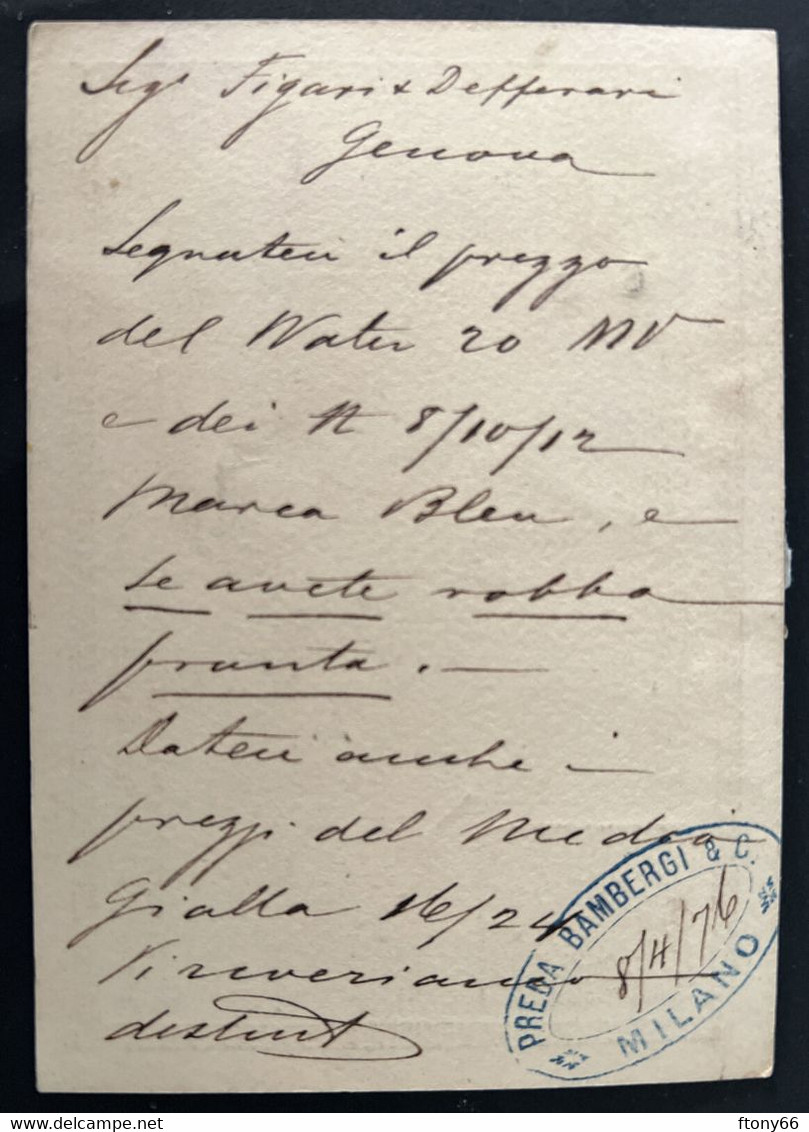 Sigi Figari & Defferari
Genova
Segnateci il prezzo
del Water 20 MV
e dei N 8/10/12
Marca Bleu, e
se avete robba
pronta. —
Dateci anche i
prezzi del Medio
Gialla 16/24
Vi riveriamo
distint
PREDA BAMBERGI & C.
8/4/76
MILANO
ftony66